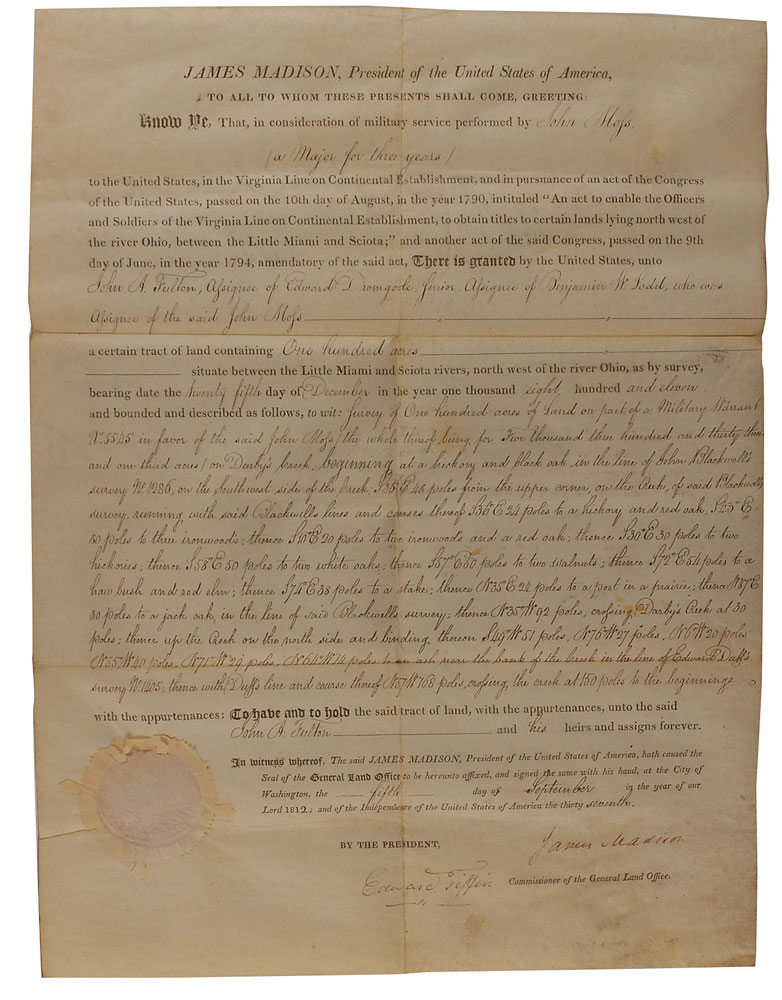 JAMES MADISON, President of the United States of America,
TO ALL TO WHOM THESE PRESENTS SHALL COME, GREETING:
Know Ye, That, in consideration of military service performed by John Moss,
(a Major for three years)
to the United States, in the Virginia Line on Continental Establishment, and in pursuance of an act of the Congress
of the United States, passed on the 10th day of August, in the year 1790, intituled "An act to enable the Officers
and Soldiers of the Virginia Line on Continental Establishment, to obtain titles to certain lands lying north west of
the river Ohio, between the Little Miami and Sciota;" and another act of the said Congress, passed on the 9th
day of June, in the year 1794, amendatory of the said act, There is granted by the United States, unto
John A. Fulton, Assignee of Edward Dromgoole, Senior, Assignee of Benjamin W. Ladd, who was
Assignee of the said John Moss
a certain tract of land containing One hundred acres
situate between the Little Miami and Sciota rivers, north west of the river Ohio, as by survey,
bearing date the twenty fifth day of December in the year one thousand eight hundred and eleven
and bounded and described as follows, to wit: Survey of One hundred acres of Land on part of a Military Warrant
No. 5545, in favor of the said John Moss (the whole thereof being for Five thousand three hundred and thirty three
and one third acres) on Darby's Creek, beginning at a hickory and black oak, in the line of John Blackwell's
survey No. 1286, on the Southwest side of the Creek, S35°E 48 poles from the upper corner, on the Creek, of said Blackwell's
survey, running with said Blackwell's lines and courses thereof S36°E 24 poles to a hickory and red oak, S45°E
80 poles to three ironwoods; thence 20 poles to two ironwoods and a red oak; thence S30°E 30 poles to two
hickories, thence S58°E 50 poles to two white oaks; thence S7°E 60 poles to two walnuts; thence S72°E 54 poles to a
haw bush and red elm; thence S74°E 38 poles to a stake; thence N35°E 24 poles to a post in a prairie; thence N87°E
80 poles to a jack oak, in the line of said Blackwell's survey; thence N35°W 92 poles, crossing Darby's Creek at 30
poles; thence up the Creek on the north side and binding thereon S49°W 51 poles, N76°W 27 poles, N6°W 20 poles
N55°W 40 poles, N71°W 29 poles, N64°W 74 poles to an ash near the bank of the creek in the line of Edward Duff's
survey No. 1405; thence with Duff's line and course thereof N57°W 768 poles, crossing the creek at 150 poles to the beginning
with the appurtenances: To have and to hold the said tract of land, with the appurtenances, unto the said
John A. Fulton and his heirs and assigns forever.
In witness whereof, The said JAMES MADISON, President of the United States of America, hath caused the
Seal of the General Land Office to be hereunto affixed, and signed the same with his hand, at the City of
Washington, the fifth day of September in the year of our
Lord 1812; and of the Independence of the United States of America the thirty seventh.
BY THE PRESIDENT,
James Madison
Edward Tiffin Commissioner of the General Land Office.